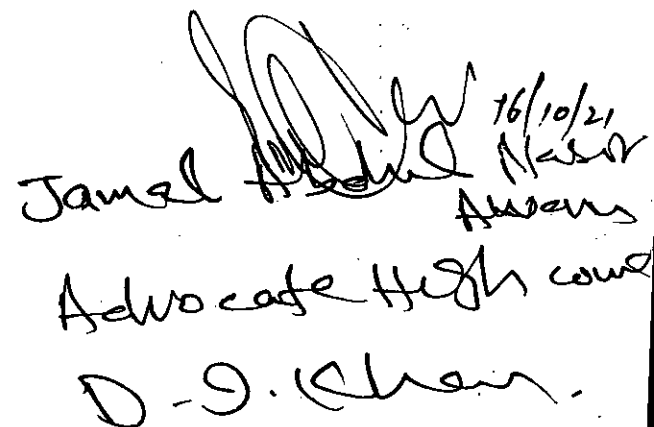 16/10/21
Jamal Abdul Nasir
Awan
Advocate High Cour
D.I.Khan.